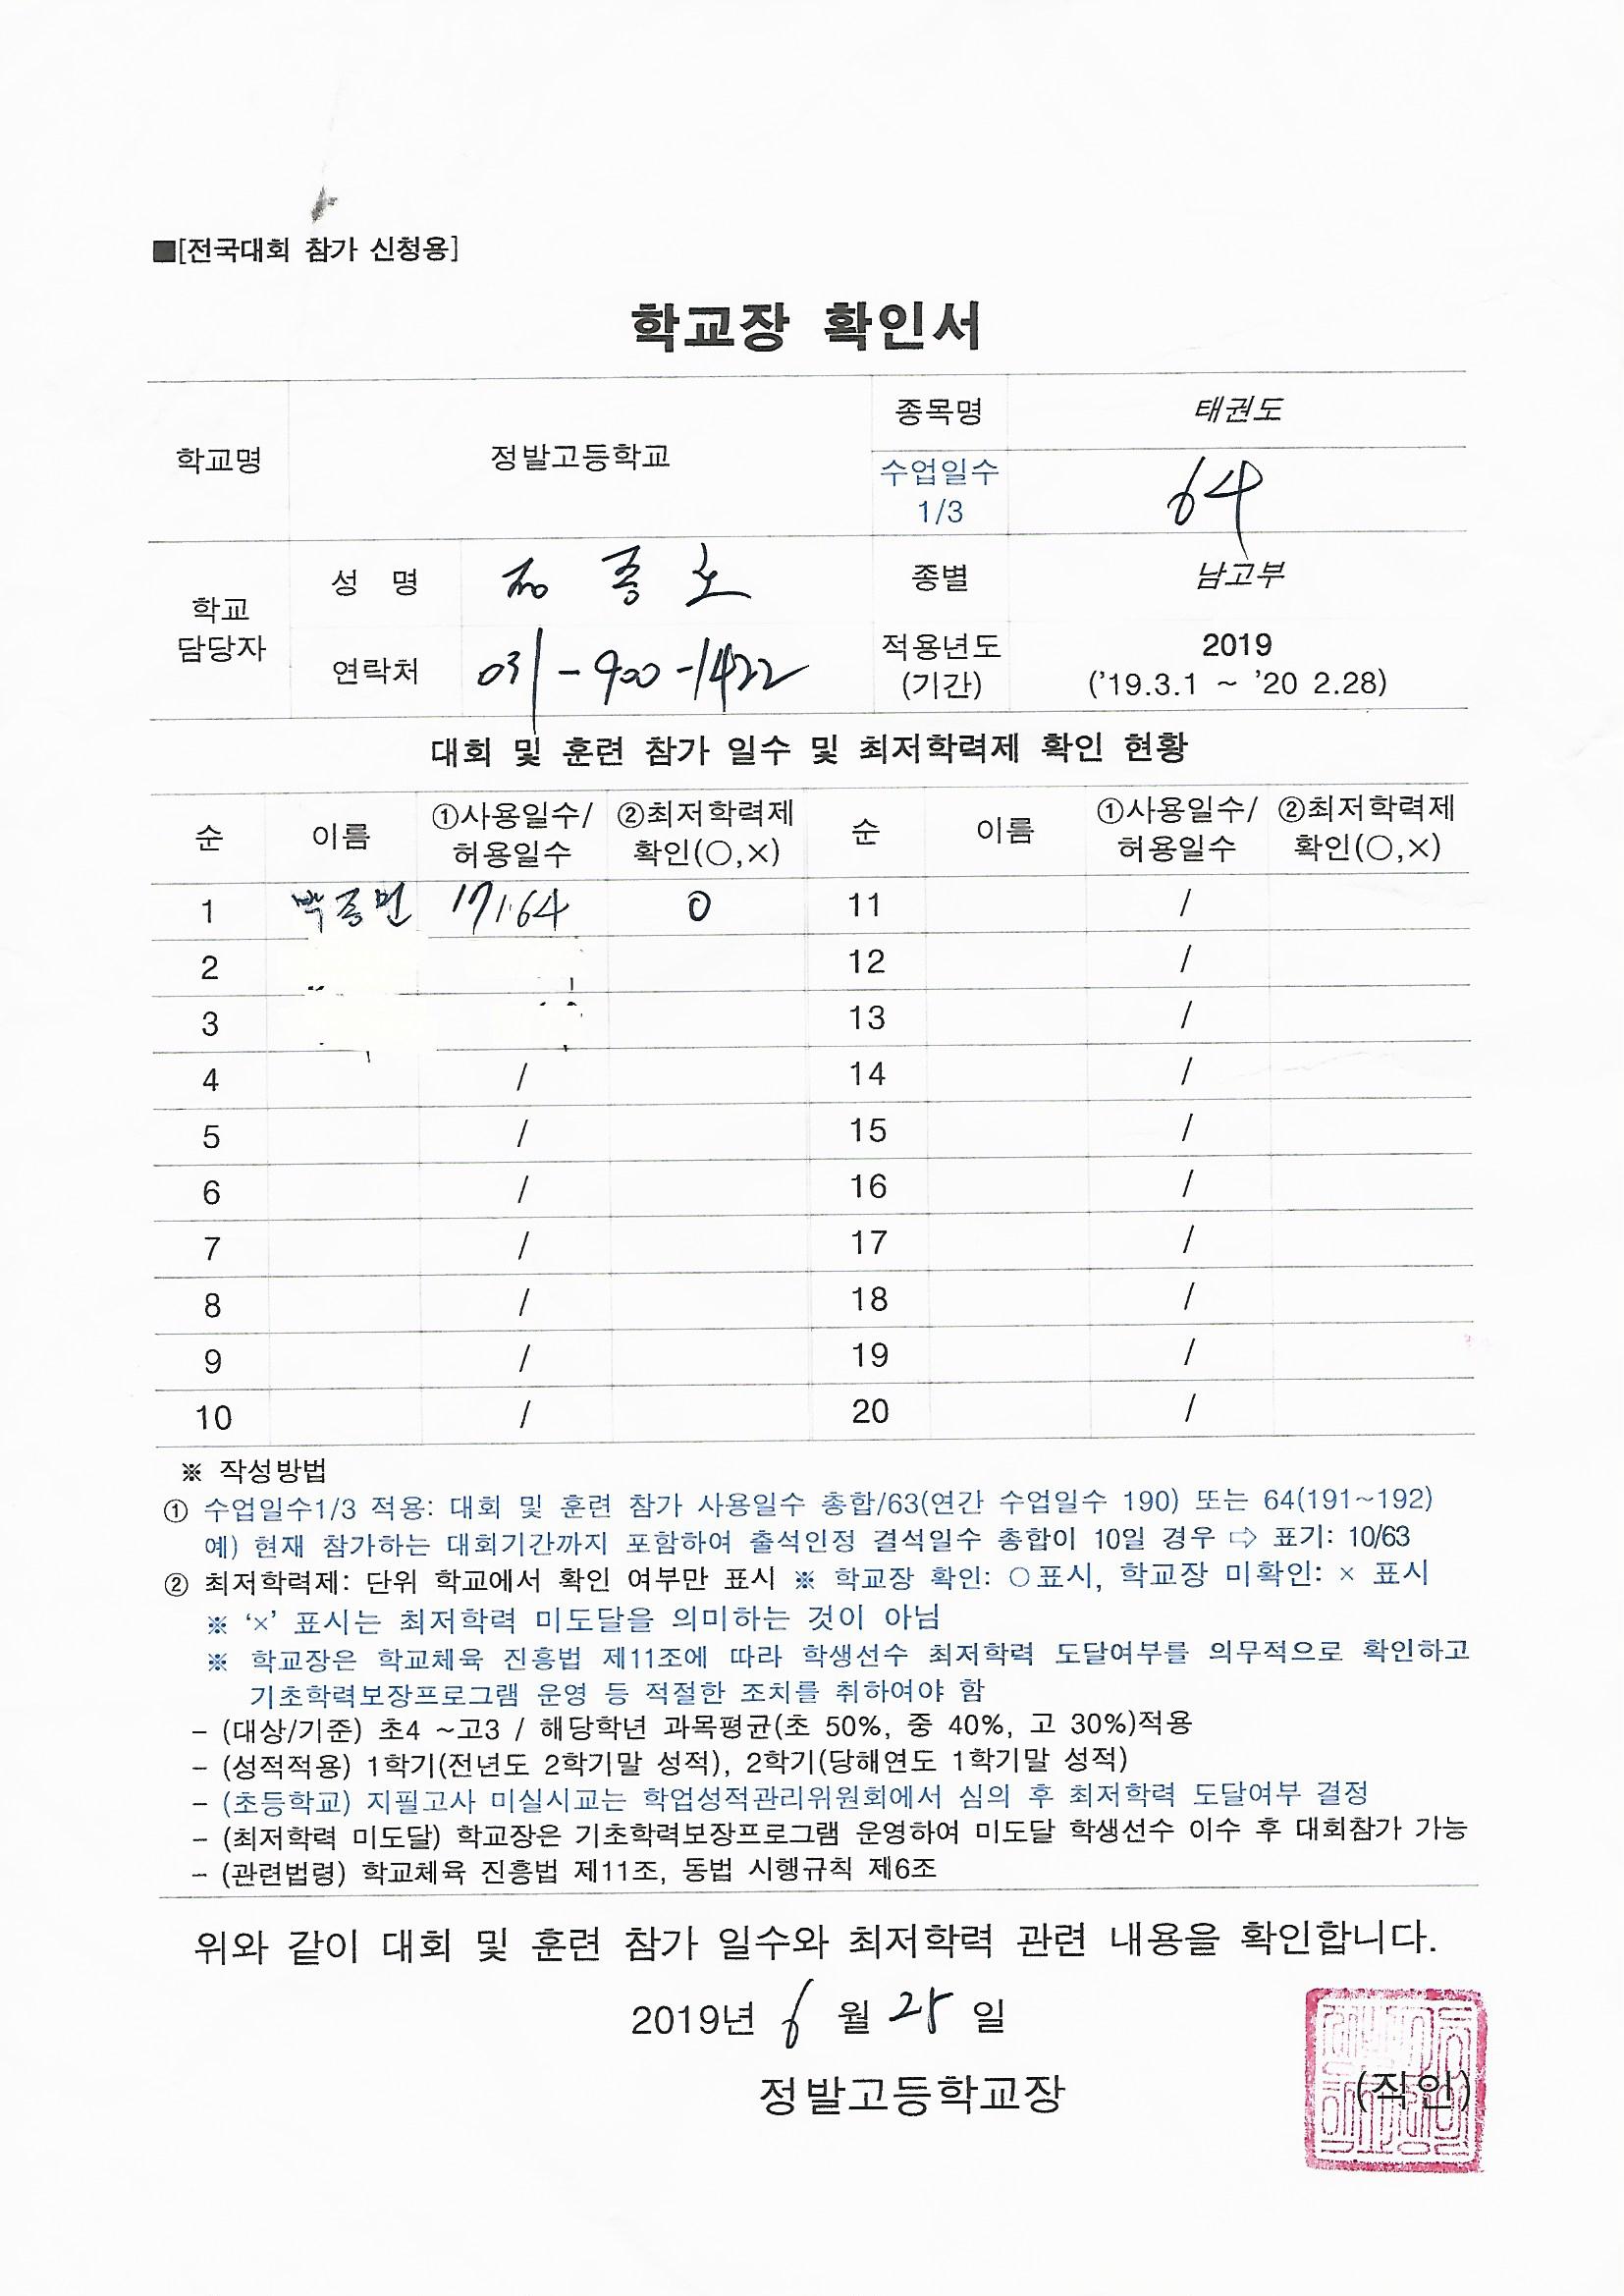 ■[전국대회 참가 신청용]
학교장 확인서
학교명 정발고등학교 종목명 태권도
수업일수 1/3 64
학교 담당자 성 명 정종노 종별 남고부
연락처 031-900-1422 적용년도 (기간) 2019 ('19.3.1 ~ '20 2.28)
대회 및 훈련 참가 일수 및 최저학력제 확인 현황
순 이름 ①사용일수/허용일수 ②최저학력제 확인(○,×) 순 이름 ①사용일수/허용일수 ②최저학력제 확인(○,×)
1 박종민 17/64 O 11 /
2 12 /
3 13 /
4 / 14 /
5 / 15 /
6 / 16 /
7 / 17 /
8 / 18 /
9 / 19 /
10 / 20 /
※ 작성방법
① 수업일수1/3 적용: 대회 및 훈련 참가 사용일수 총합/63(연간 수업일수 190) 또는 64(191~192)
예) 현재 참가하는 대회기간까지 포함하여 출석인정 결석일수 총합이 10일 경우 ⇨ 표기: 10/63
② 최저학력제: 단위 학교에서 확인 여부만 표시 ※ 학교장 확인: ○표시, 학교장 미확인: × 표시
※ ‘×’ 표시는 최저학력 미도달을 의미하는 것이 아님
※ 학교장은 학교체육 진흥법 제11조에 따라 학생선수 최저학력 도달여부를 의무적으로 확인하고
기초학력보장프로그램 운영 등 적절한 조치를 취하여야 함
- (대상/기준) 초4 ~고3 / 해당학년 과목평균(초 50%, 중 40%, 고 30%)적용
- (성적적용) 1학기(전년도 2학기말 성적), 2학기(당해연도 1학기말 성적)
- (초등학교) 지필고사 미실시교는 학업성적관리위원회에서 심의 후 최저학력 도달여부 결정
- (최저학력 미도달) 학교장은 기초학력보장프로그램 운영하여 미도달 학생선수 이수 후 대회참가 가능
- (관련법령) 학교체육 진흥법 제11조, 동법 시행규칙 제6조
위와 같이 대회 및 훈련 참가 일수와 최저학력 관련 내용을 확인합니다.
2019년 6 월 25 일
정발고등학교장 (직인)